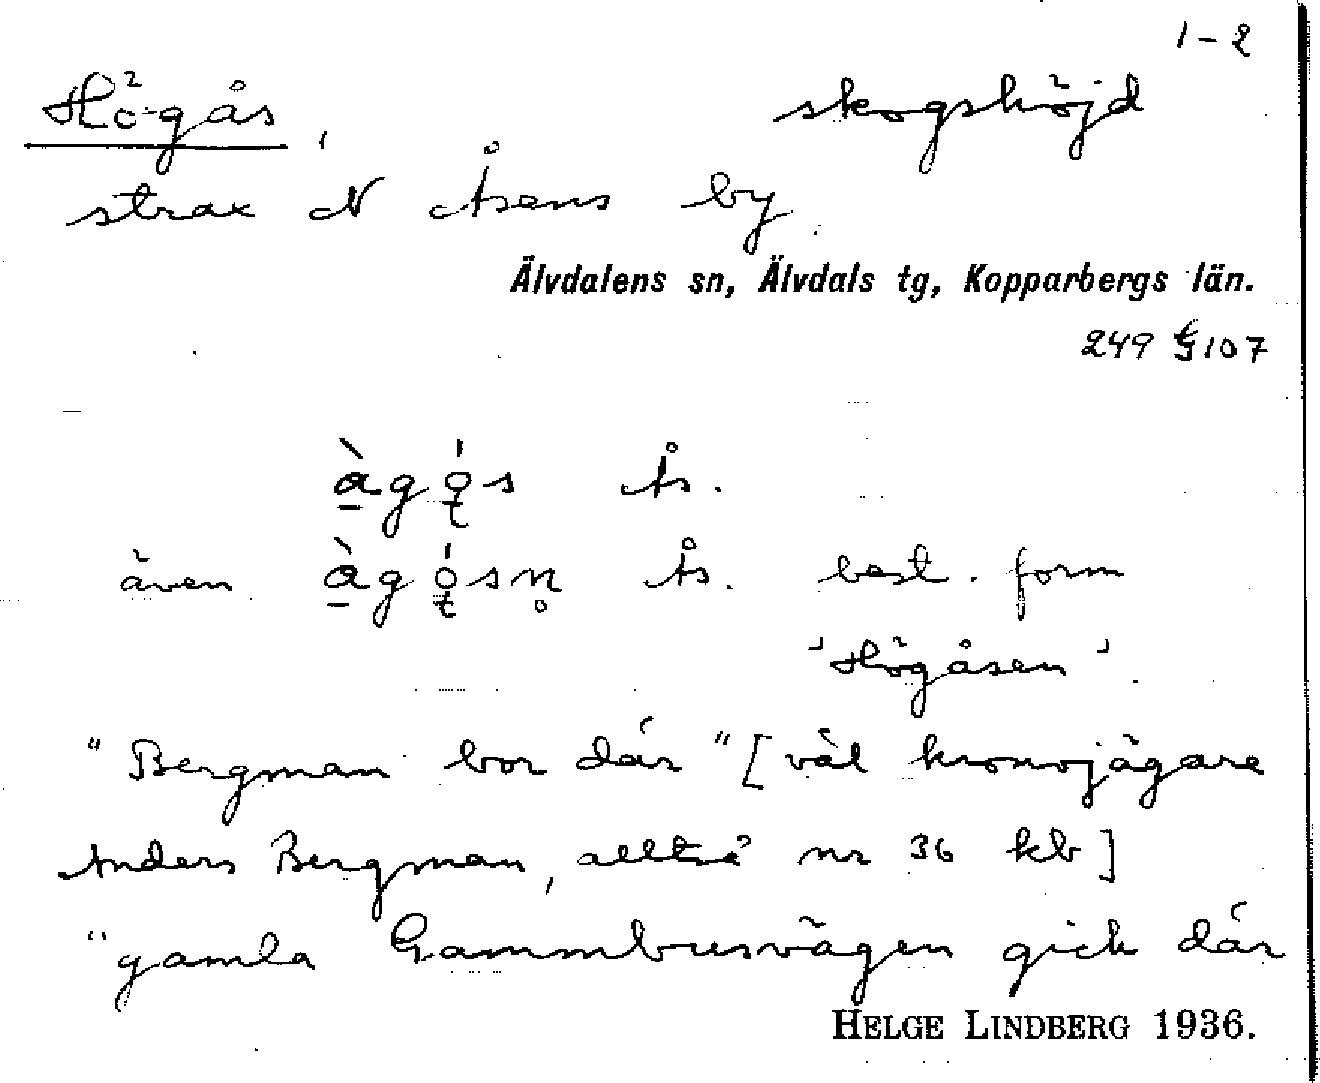 1-2
Högås, skogshöjd
strax N Åsens by.
Älvdalens sn, Älvdals tg, Kopparbergs län.
249 § 107
Ås.
även Ås. best. form
'Högåsen'.
"Bergman bor där" [väl kronojägare
Anders Bergman, alltså nr 36 kb]
"gamla Gammbusvägen gick där
HELGE LINDBERG 1936.